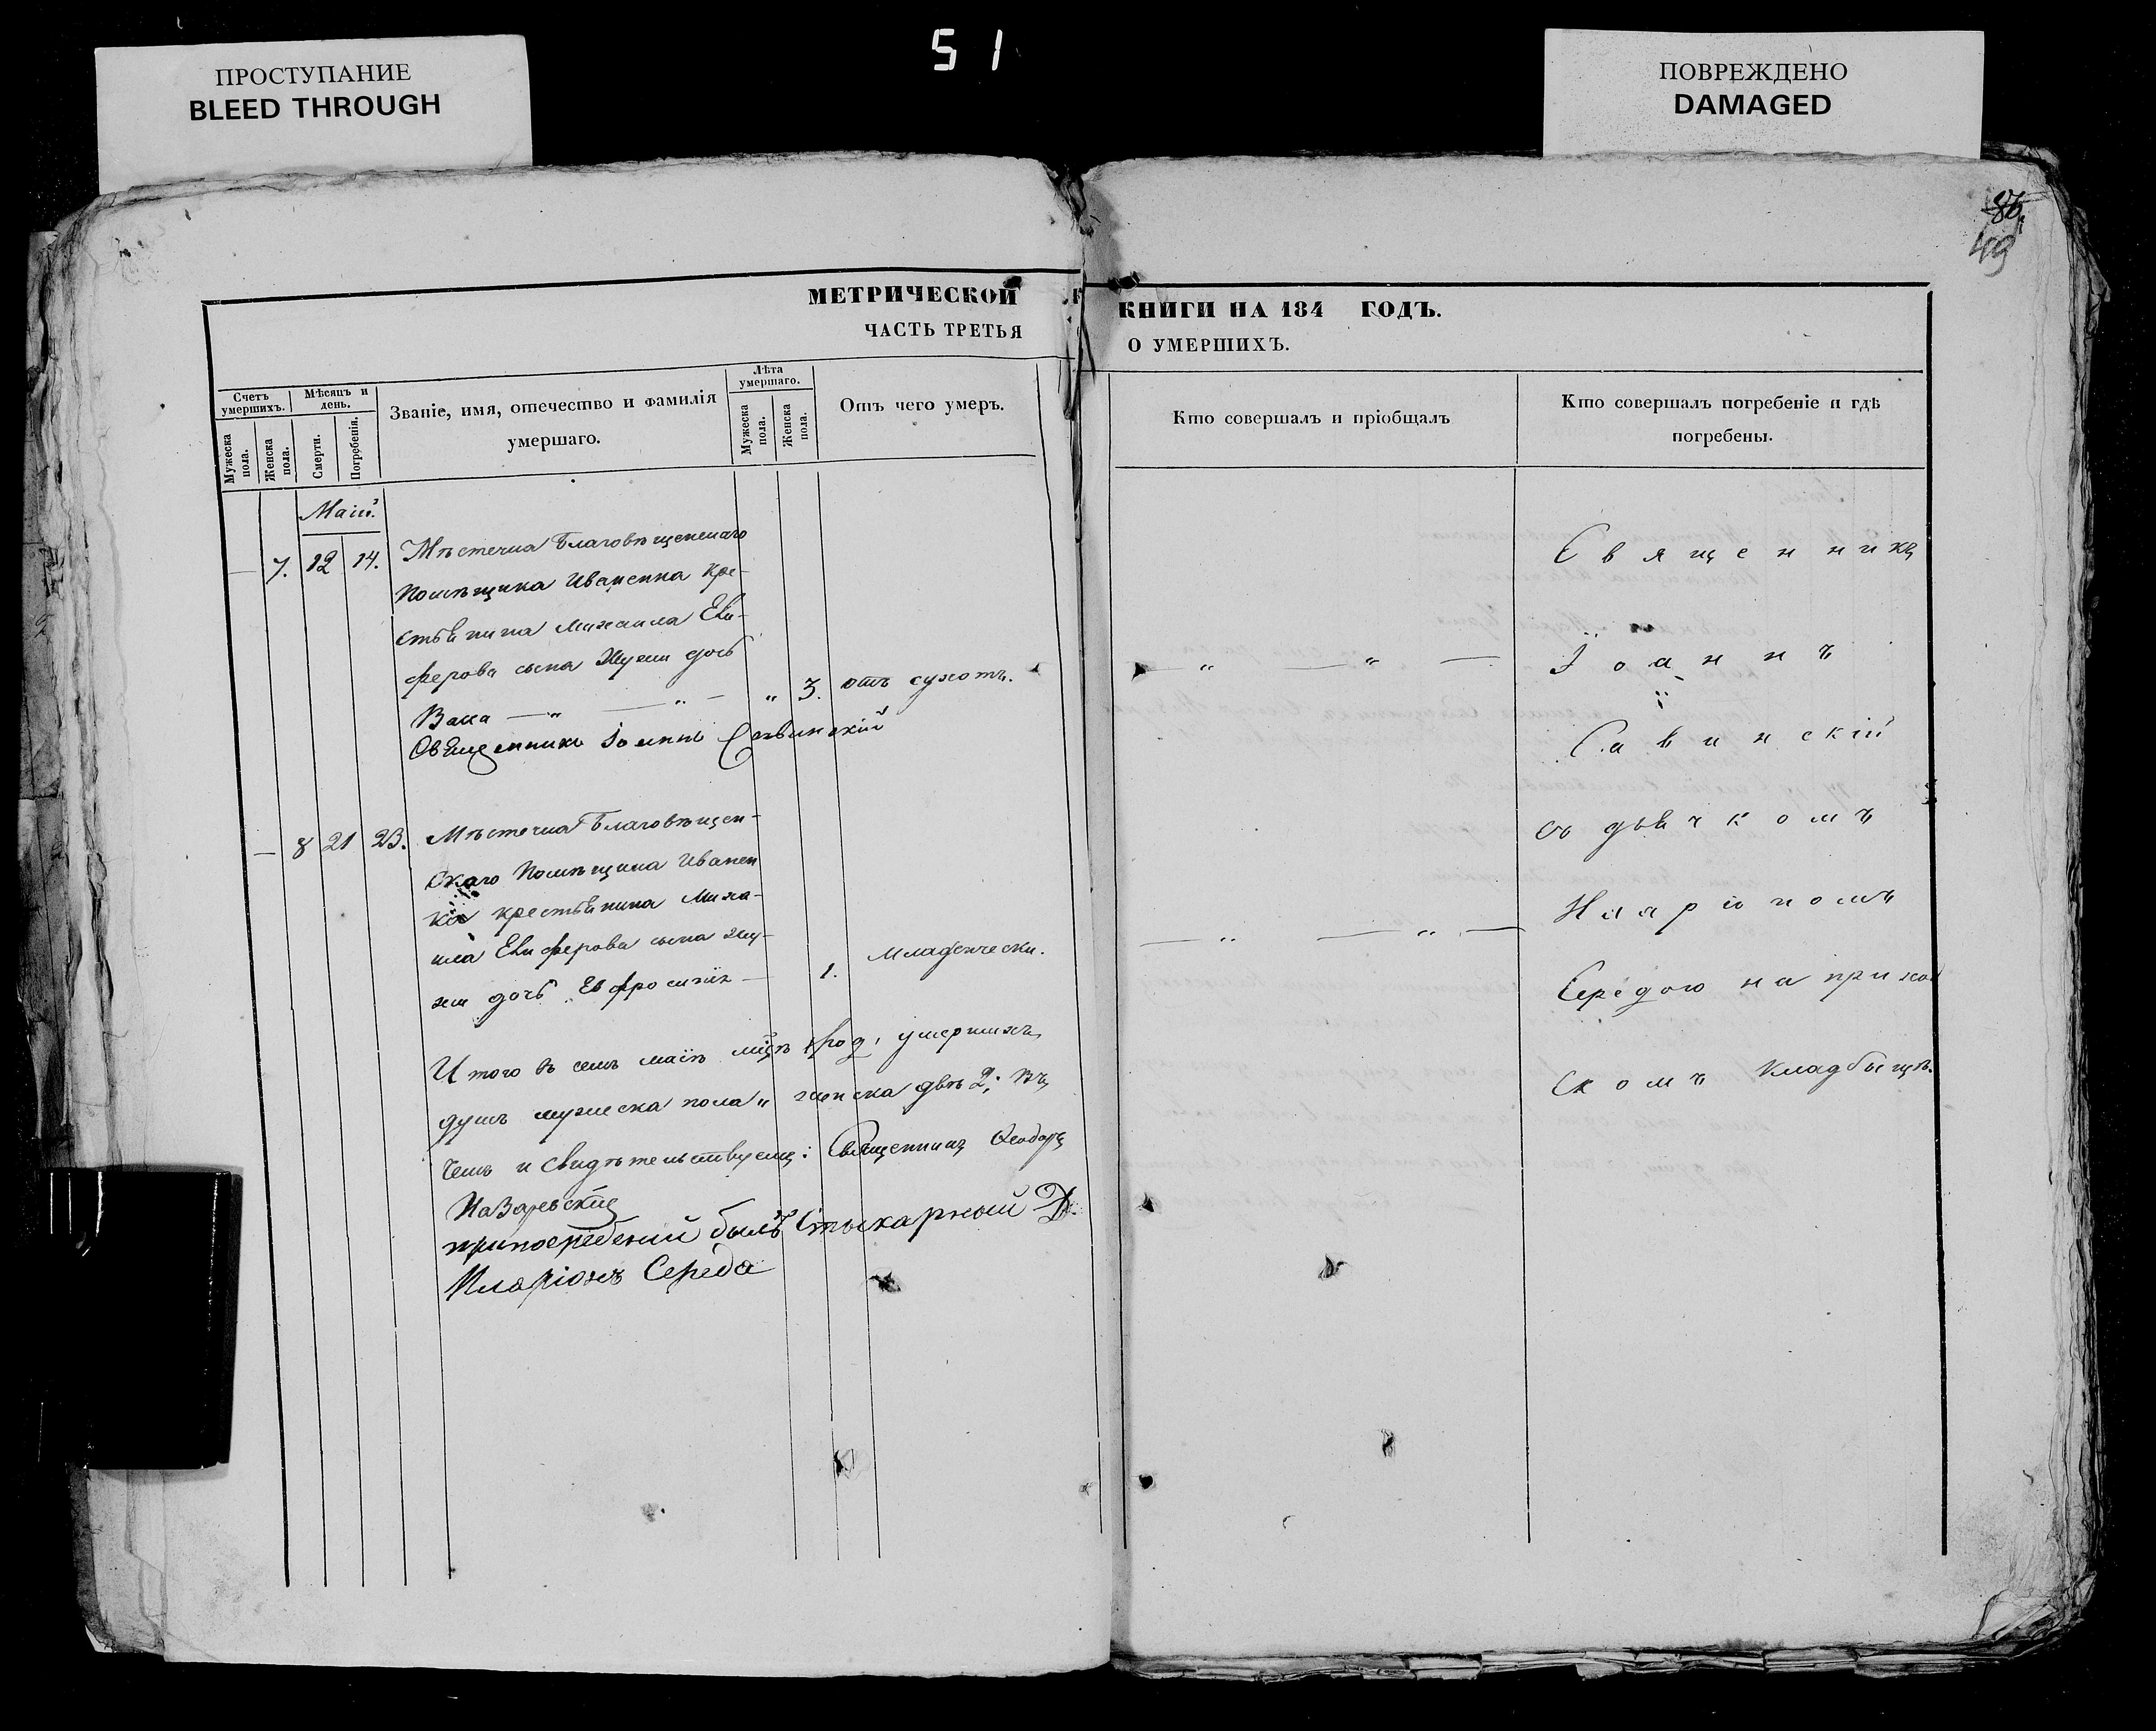 51
ПРОСТУПАНИЕ
BLEED THROUGH
ПОВРЕЖДЕНО
DAMAGED
86.
49
МЕТРИЧЕСКОЙ
ЧАСТЬ ТРЕТЬЯ
Счетъ умершихъ.
Мужеска пола.
Женска пола.
Мѣсяцъ и день.
Смерти.
Погребенія.
Званіе, имя, отечество и фамилія
умершаго.
Лѣта умершаго.
Мужеска пола.
Женска пола.
Отъ чего умеръ.
Маій.
7. 12 14. Мѣстечка Благовѣщенскаго
Помѣщика Иваненка кре-
стьянина Михаила Еви-
ферова сына дочь
„ 3. отъ сухотъ.
Священникъ Іоаннъ Савинскій
8 21 23. Мѣстечка Благовѣщен-
скаго Помѣщика Иванен
ка крестьянина Миха-
ила Евиферова сына
дочь Евфросинія 1. Младенчески.
Итого въ семъ маіѣ мцѣ умершихъ
душъ мужеска пола „ женска двѣ 2; въ
чемъ и свидѣтельствуемъ: Священникъ Ѳеодоръ
Назаревскій
при погребеніи былъ Стыхарный Д.
Иларіонъ Середа
КНИГИ НА 184 ГОДЪ.
О УМЕРШИХЪ.
Кто совершалъ и пріобщалъ
Кто совершалъ погребеніе и гдѣ
погребены.
Священникъ
Іоаннъ
Савинскій
съ дьячкомъ
Середою на приход
скомъ кладбыщѣ.